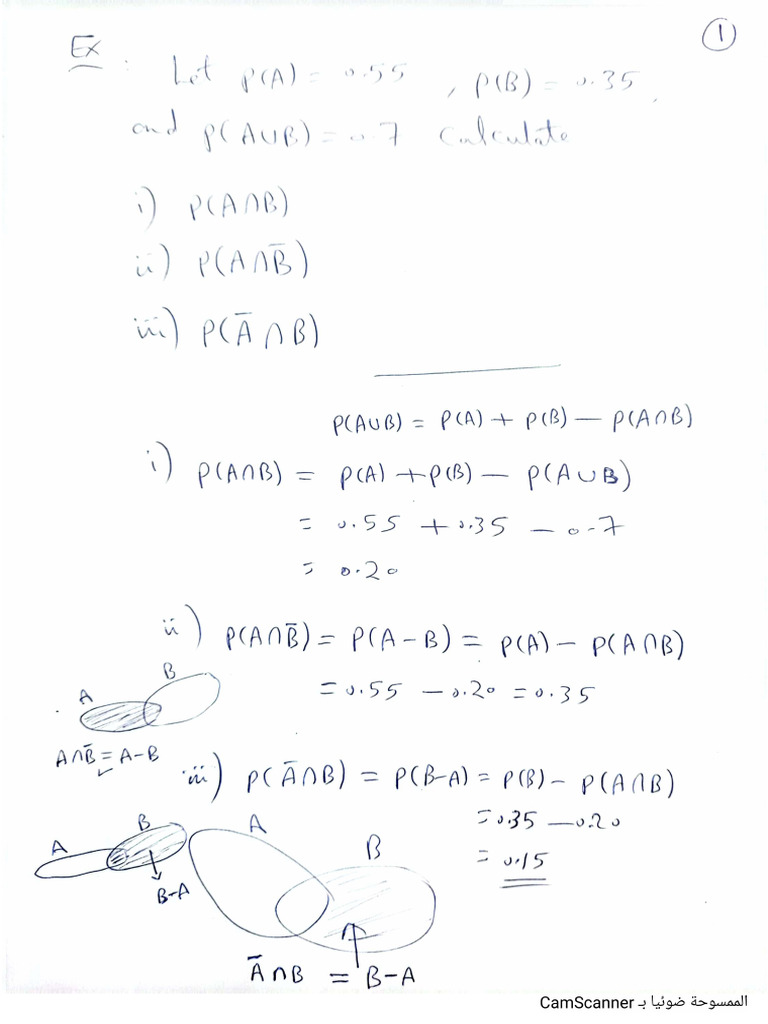 ①
Ex : Let P(A) = 0.55 , P(B) = 0.35,
and P(A∪B) = 0.7 Calculate
i) P(A∩B)
ii) P(A∩B̅)
iii) P(A̅∩B)
P(A∪B) = P(A) + P(B) — P(A∩B)
i) P(A∩B) = P(A) + P(B) — P(A∪B)
= 0.55 + 0.35 — 0.7
= 0.20
ii) P(A∩B̅) = P(A – B) = P(A) — P(A∩B)
= 0.55 — 0.20 = 0.35
A B
A∩B̅ = A – B
iii) P(A̅∩B) = P(B–A) = P(B) – P(A∩B)
= 0.35 — 0.20
= 0.15
A B
B–A
A B
A̅∩B = B–A
الممسوحة ضوئيا بـ CamScanner